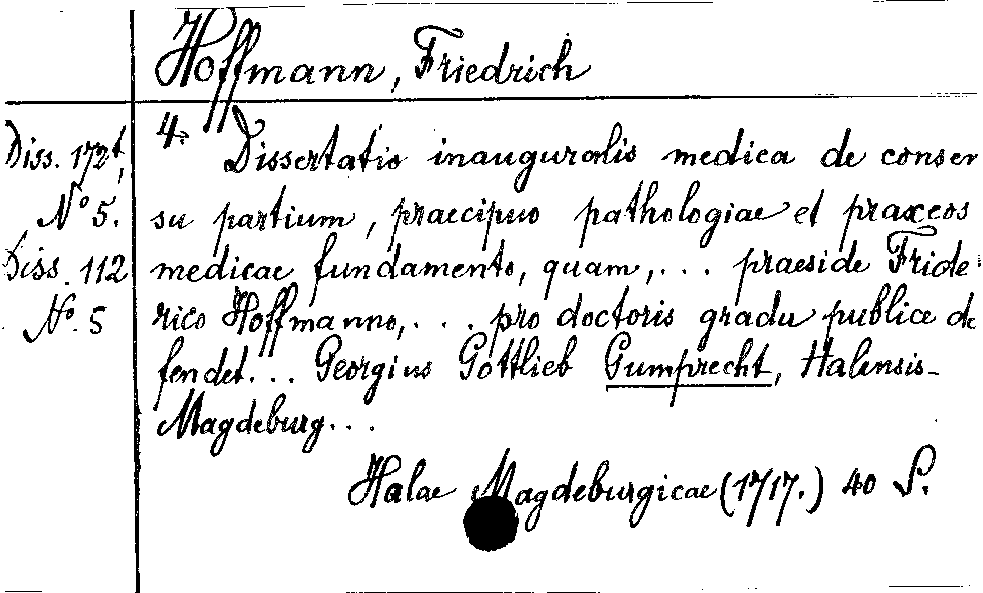 Hoffmann, Friedrich
Diss. 172t,
No 5.
Diss. 112
No. 5
4. Dissertatio inauguralis medica de consen
su partium, praecipuo pathologiae et praxeos
medicae fundamento, quam,... praeside Fride
rico Hoffmanno,... pro doctoris gradu publice de
fendet... Georgius Gottlieb Gumprecht, Halensis-
Magdeburg...
Halae Magdeburgicae (1717.) 40 S.